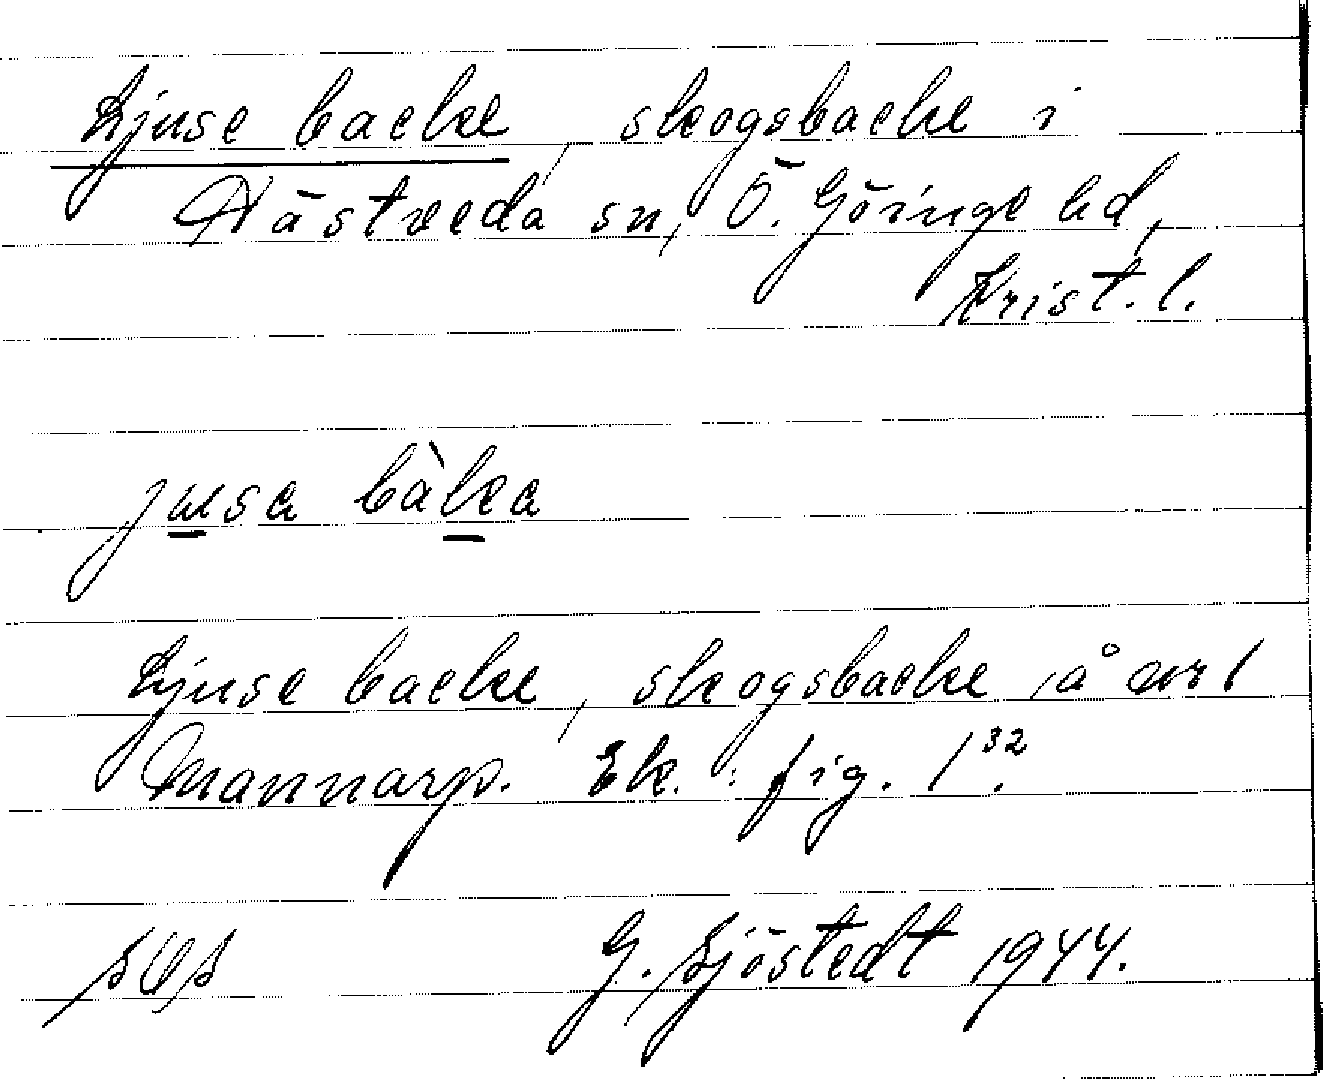 Ljuse backe, skogsbacke i
Hästveda sn, Ö. Göinge hd,
Krist. l.
jusa bàka
Ljuse backe, skogsbacke, å nr 1
Mannarp. Ek. : fig. 1³².
G. Sjöstedt 1944.